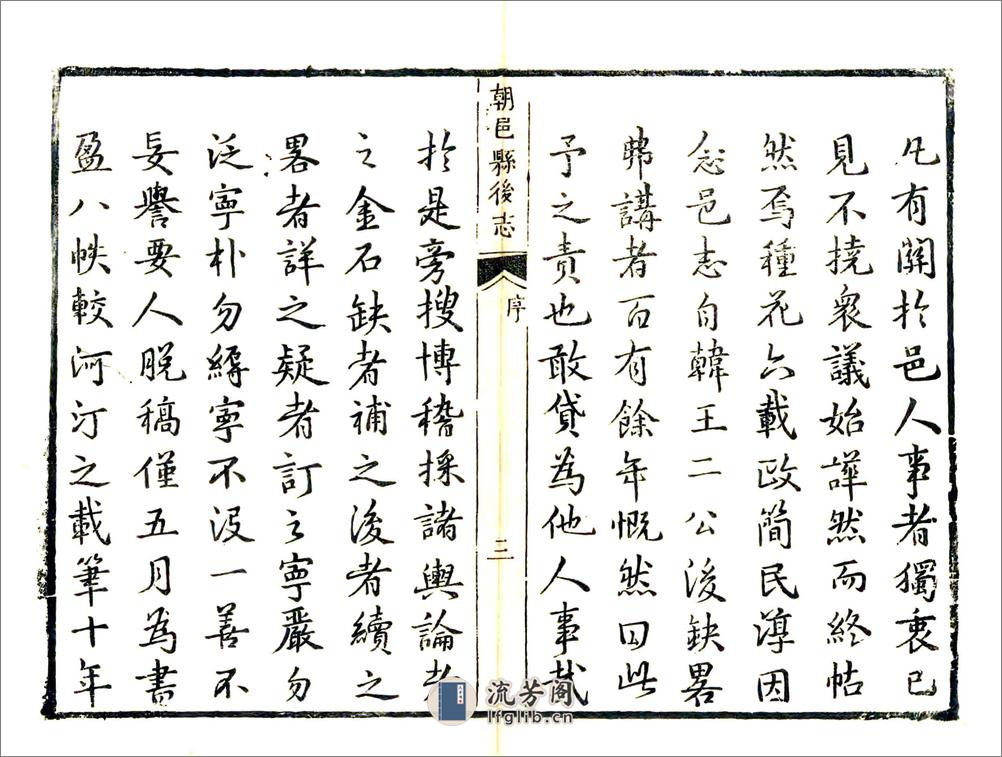 凡有關於邑人事者獨衷己
見不撓衆議始譁然而終帖
然焉種花六載政簡民淳因
念邑志自韓王二公後缺畧
弗講者百有餘年慨然曰此
予之責也敢貸為他人事哉
朝邑縣後志
序
三
於是旁搜博稽採諸輿論考
之金石缺者補之後者續之
畧者詳之疑者訂之寧嚴勿
泛寧朴勿縟寧不没一善不
妄譽要人脫稿僅五月為書
盈八帙較河汀之載筆十年
流芳阁
lfglib.cn